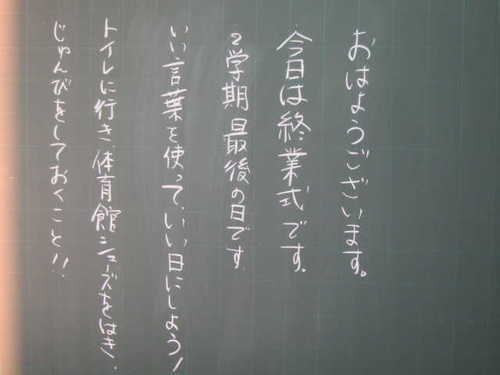 おはようございます。
今日は終業式です。
2学期最後の日です
いい言葉を使って、いい日にしよう!
トイレに行き、体育館シューズをはき、
じゅんびをしておくこと!!